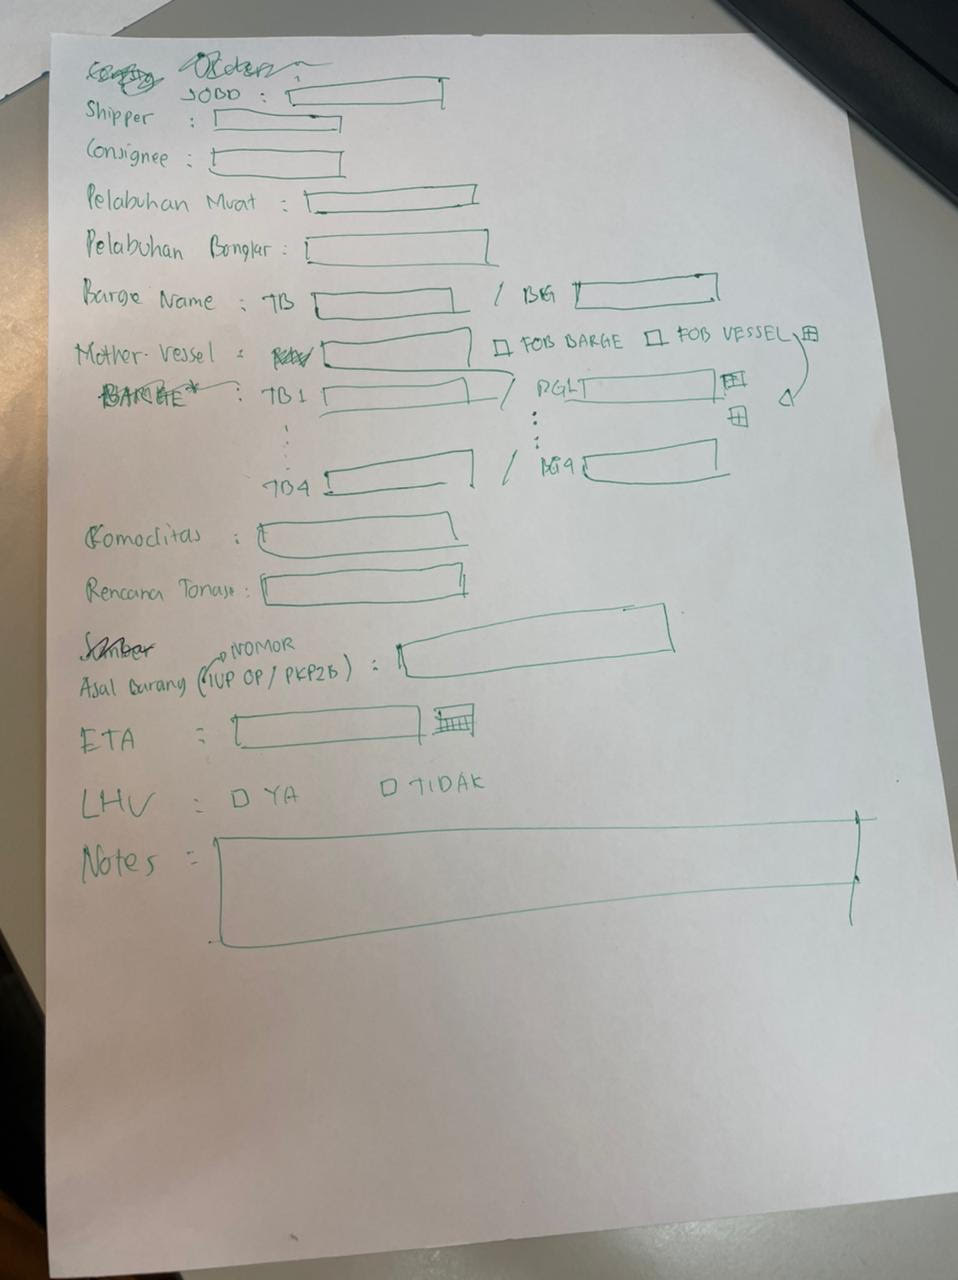 Orders
JOBD :
Shipper :
Consignee :
Pelabuhan Muat :
Pelabuhan Bongkar :
Barge Name : TB / BG
Mother Vessel : FOB BARGE FOB VESSEL
BARGE* : TB1 / BG1
TB4 / BG4
Komoditas :
Rencana Tonase :
Sumber NOMOR
Asal Barang (IUP OP / PKP2B) :
ETA :
LHV : YA TIDAK
Notes :